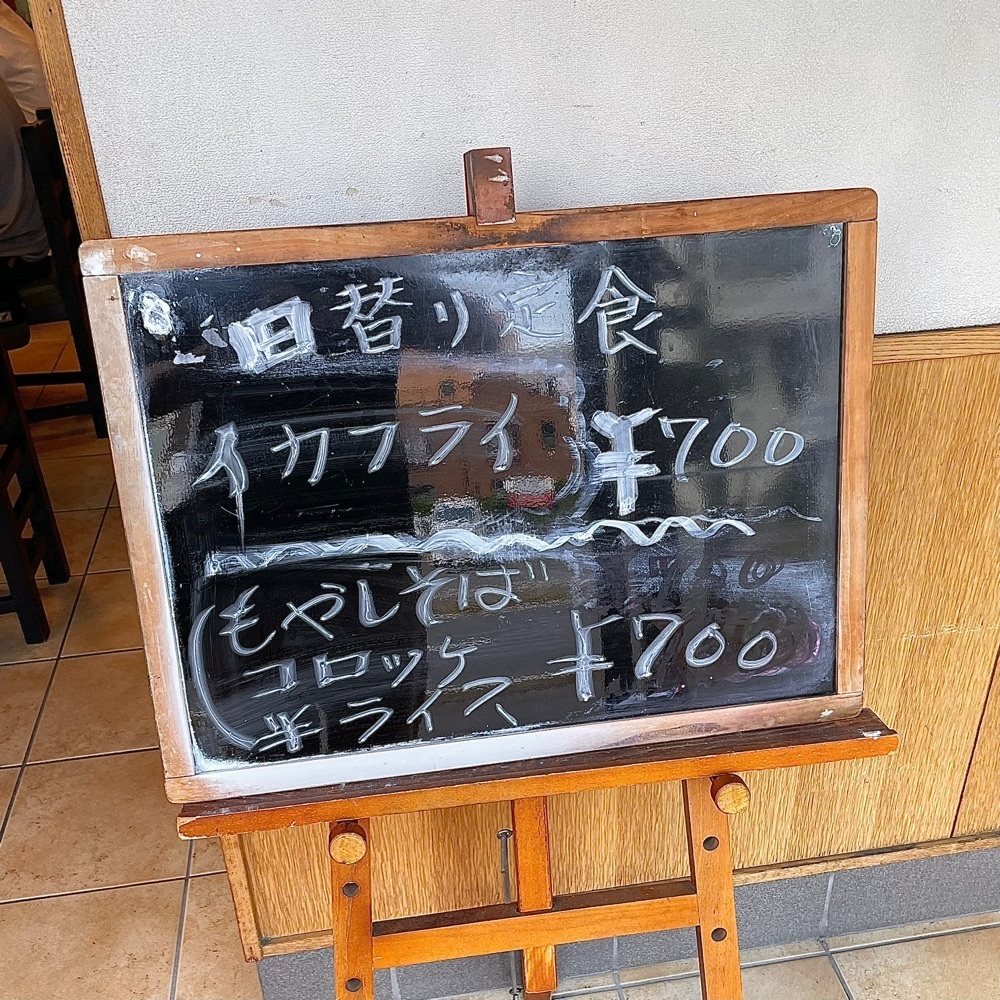 日替り定食
イカフライ ¥700
もやしそば
コロッケ ¥700
半ライス